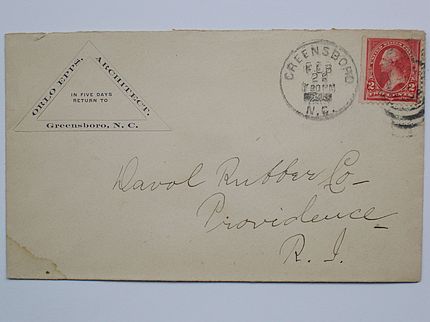 ORLO EPPS, ARCHITECT.
IN FIVE DAYS
RETURN TO
Greensboro, N. C.
GREENSBORO
FEB
N.C.
2 2
TWO CENTS
Davol Rubber Co
Providence
R. I.